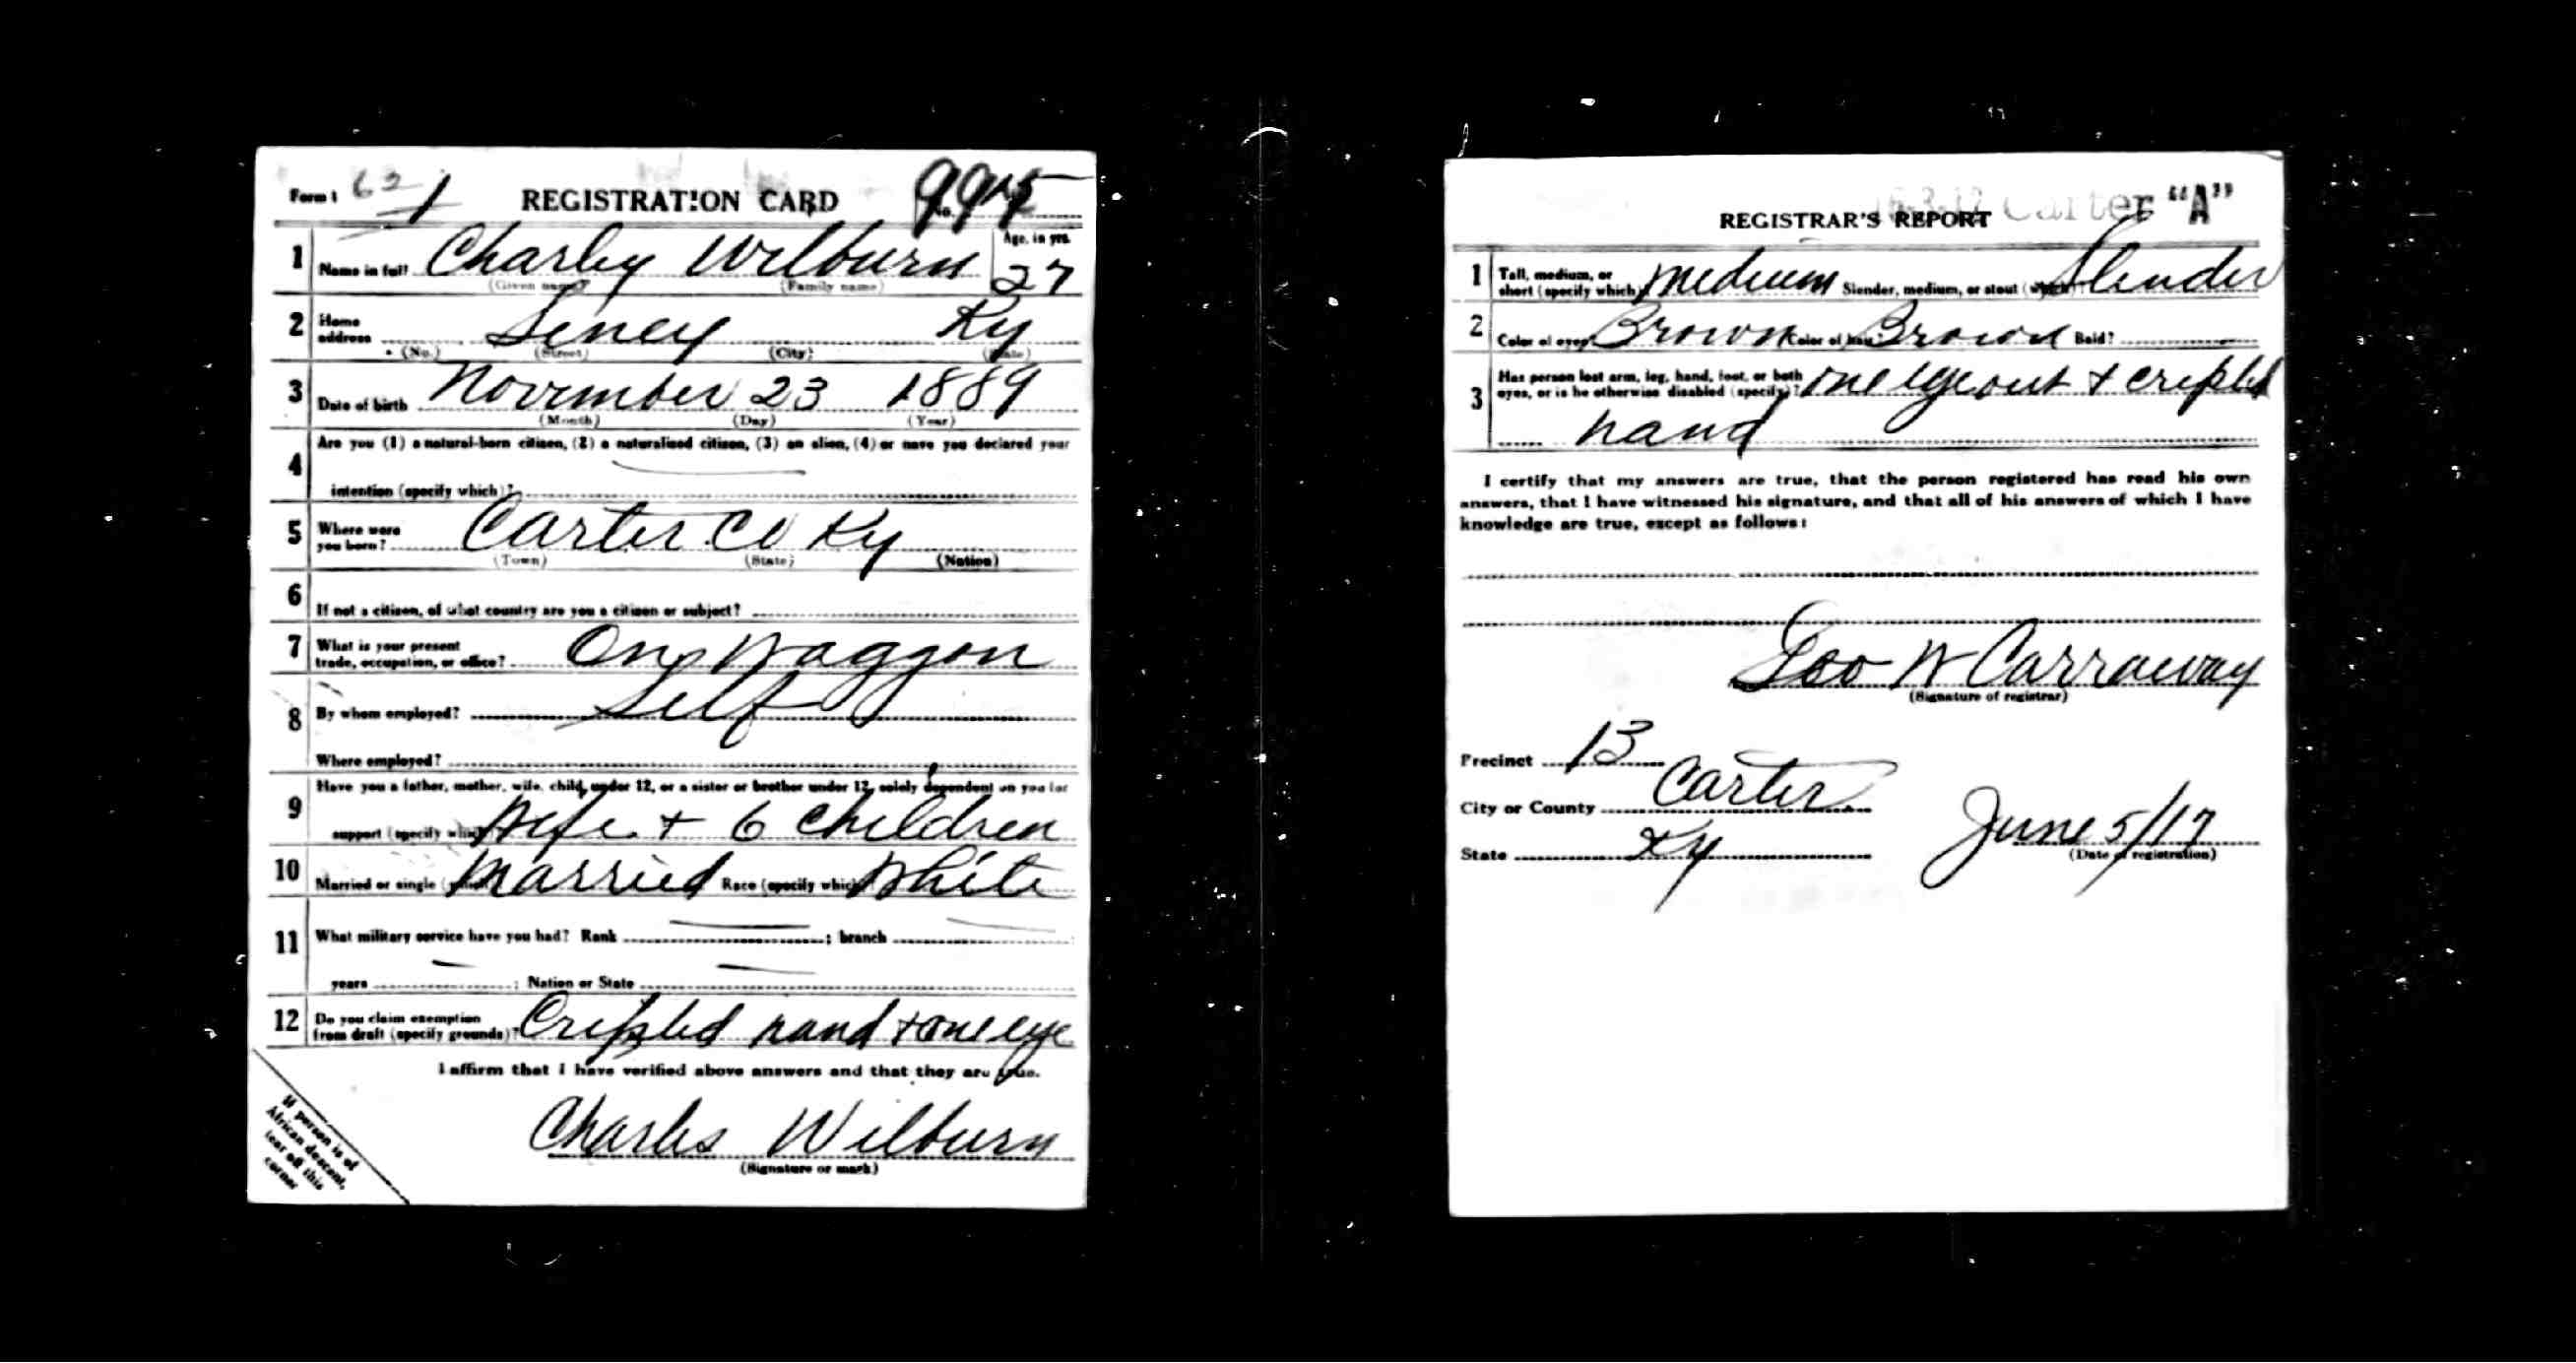 Form 1
REGISTRATION CARD
No.
1 Name in full Charley Wilburn
Age, in yrs. 27
(Given name) (Family name)
2 Home address Ky
(No.) (Street) (City) (State)
3 Date of birth November 23 1889
(Month) (Day) (Year)
4 Are you (1) a natural-born citizen, (2) a naturalized citizen, (3) an alien, (4) or have you declared your
intention (specify which)?
5 Where were you born? Carter Co Ky
(Town) (State) (Nation)
6 If not a citizen, of what country are you a citizen or subject?
7 What is your present trade, occupation, or office? On Waggon
8 By whom employed? Self
Where employed?
9 Have you a father, mother, wife, child under 12, or a sister or brother under 12, solely dependent on you for
support (specify which)? Wife + 6 Children
10 Married or single (which)? Married Race (specify which)? White
11 What military service have you had? Rank ; branch
years ; Nation or State
12 Do you claim exemption from draft (specify grounds)? Cripled hand + one eye
I affirm that I have verified above answers and that they are true.
Charles Wilburn
(Signature or mark)
If person is of
African descent,
tear off this
corner
Carter "A"
REGISTRAR'S REPORT
1 Tall, medium, or short (specify which)? Medium Slender, medium, or stout (which)? Slender
2 Color of eyes? Brown Color of hair? Brown Bald?
3 Has person lost arm, leg, hand, foot, or both
eyes, or is he otherwise disabled (specify)? one eye out + cripled
hand
I certify that my answers are true, that the person registered has read his own
answers, that I have witnessed his signature, and that all of his answers of which I have
knowledge are true, except as follows:
Geo W Carraway
(Signature of registrar)
Precinct 13
City or County Carter
State Ky
June 5/17
(Date of registration)